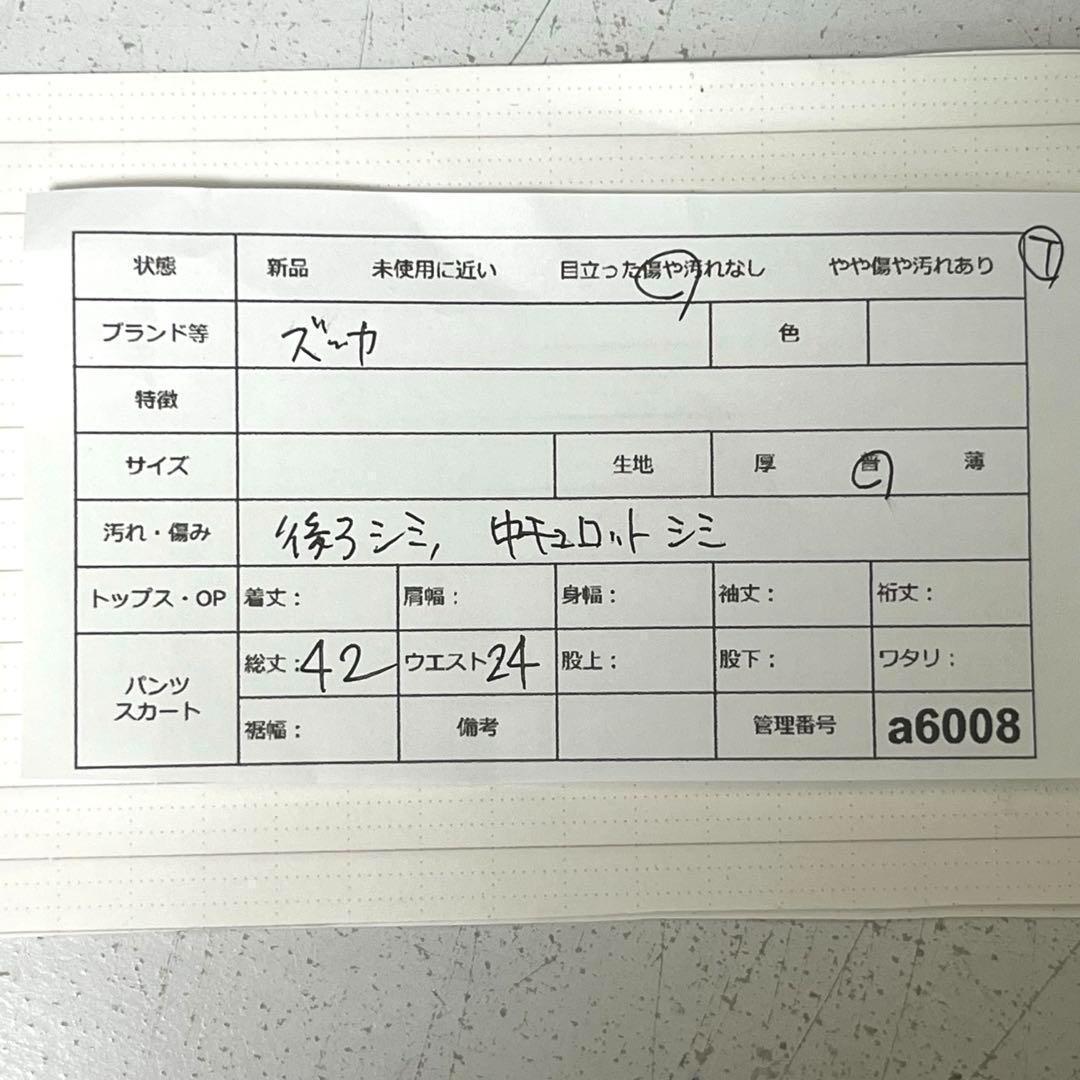 状態 新品 未使用に近い 目立った傷や汚れなし やや傷や汚れあり T
ブランド等 ズッカ 色
特徴
サイズ 生地 厚 普 薄
汚れ・傷み 後ろシミ, 中キュロットシミ
トップス・OP 着丈： 肩幅： 身幅： 袖丈： 裄丈：
パンツ スカート 総丈：42 ウエスト24 股上： 股下： ワタリ：
裾幅： 備考 管理番号 a6008